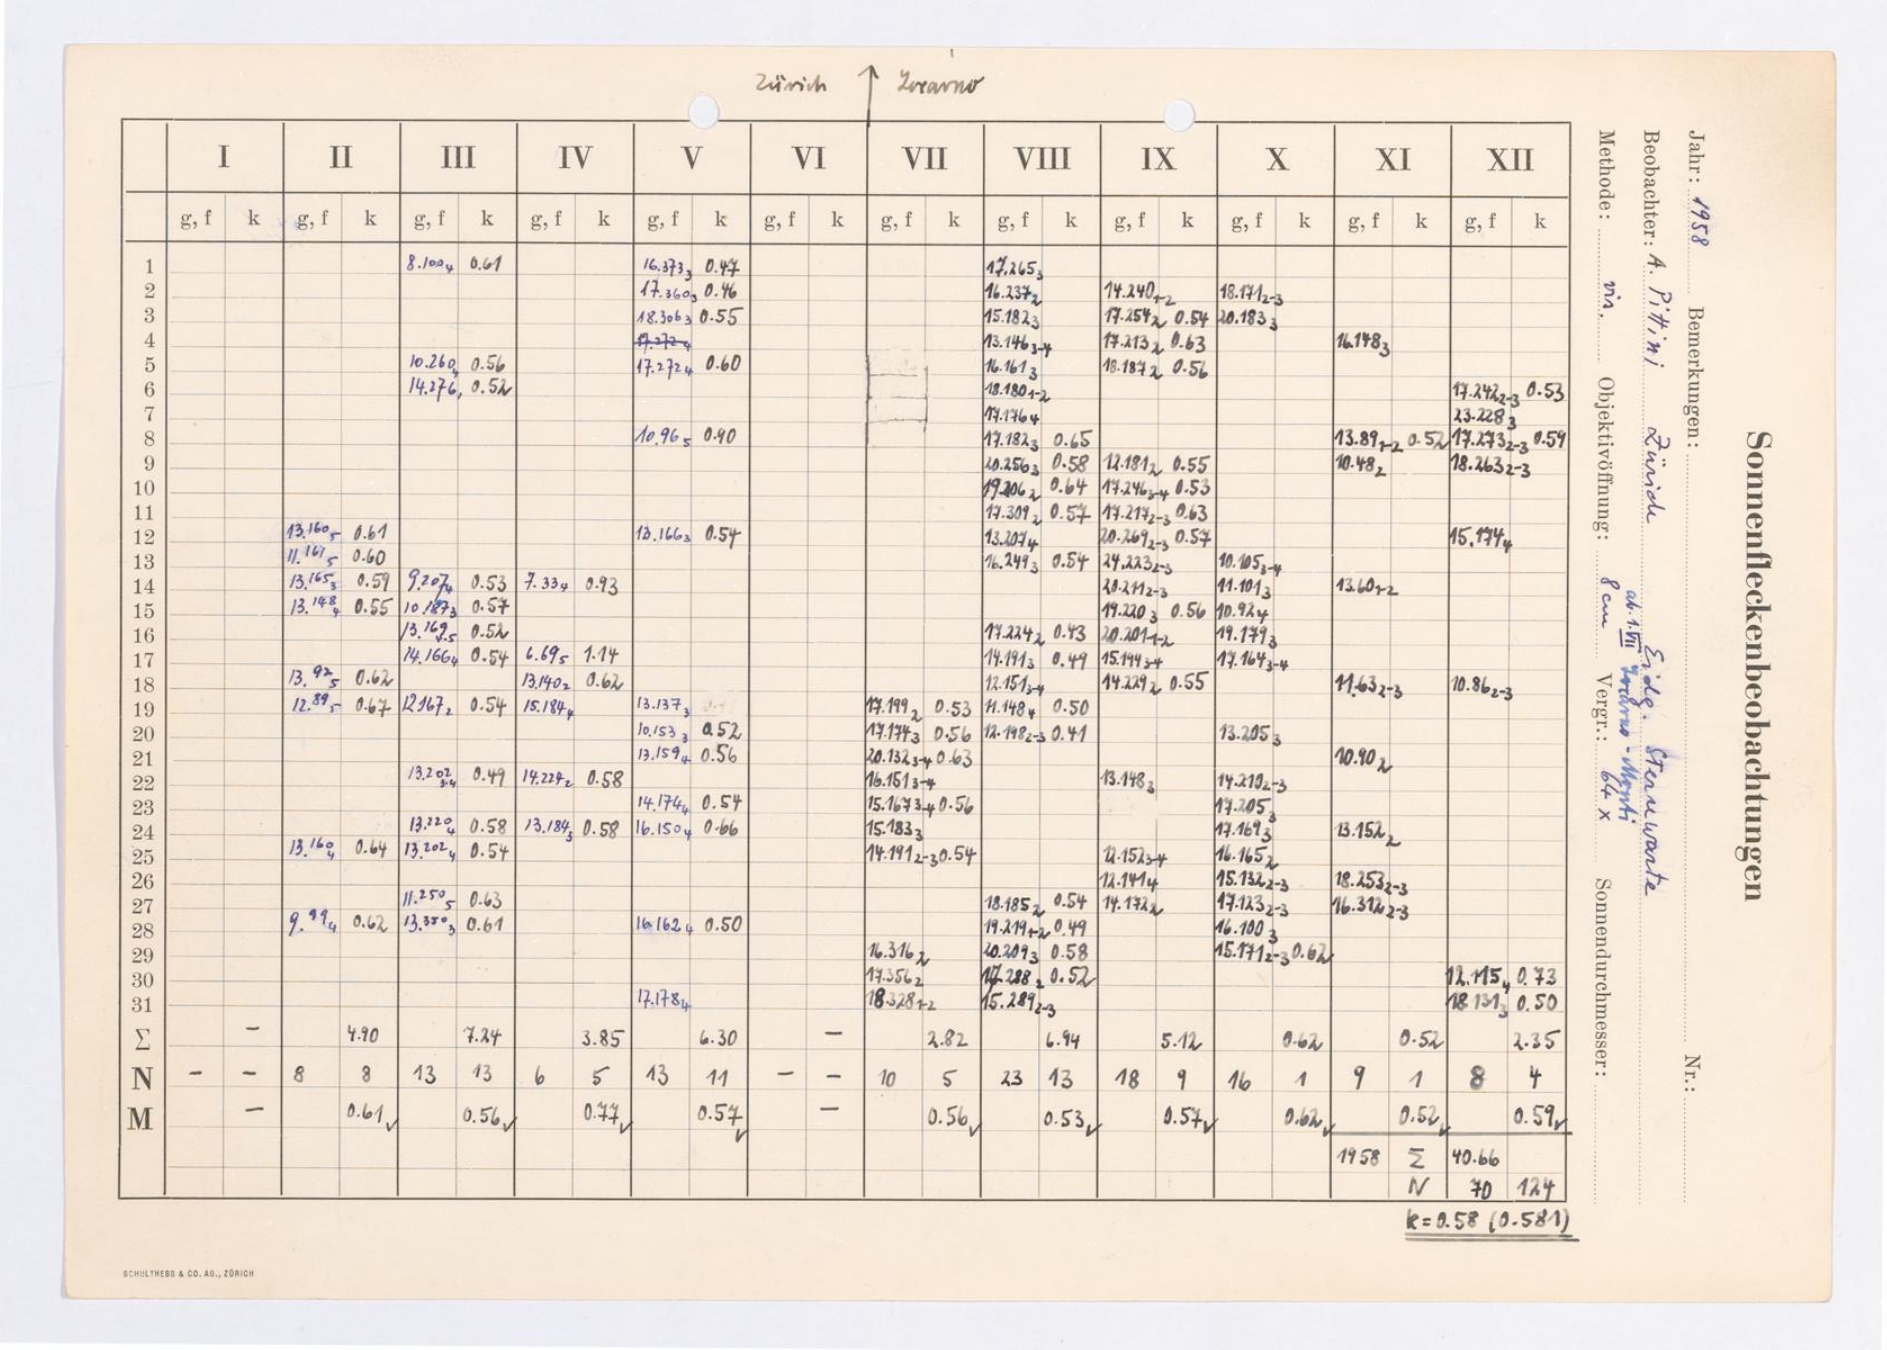 Zürich ↑ Locarno
Sonnenfleckenbeobachtungen
Jahr: 1958 Bemerkungen: Nr.:
Beobachter: A. Pittini Zürich Eidg. Sternwarte
ab 1.VII Locarno-Monti
Methode: vis. Objektivöffnung: 8 cm Vergr.: 64 x Sonnendurchmesser:
I II III IV V VI VII VIII IX X XI XII
g, f k g, f k g, f k g, f k g, f k g, f k g, f k g, f k g, f k g, f k g, f k g, f k
1 8.100₄ 0.61 16.373₃ 0.47 17.265₃
2 17.360₃ 0.46 16.237₂ 14.240₁₋₂ 18.171₂₋₃
3 18.306₃ 0.55 15.182₃ 17.254₂ 0.54 20.183₃
4 17.272₄ 13.146₃₋₄ 17.213₂ 0.63 16.148₃
5 10.260₄ 0.56 17.272₄ 0.60 16.161₃ 18.187₂ 0.56
6 14.276, 0.52 18.180₁₋₂ 17.242₂₋₃ 0.53
7 17.176₄ 23.228₃
8 10.96₅ 0.90 17.182₃ 0.65 13.89₁₋₂ 0.52 17.273₂₋₃ 0.59
9 20.256₃ 0.58 12.181₂ 0.55 10.48₂ 18.263₂₋₃
10 19.206₂ 0.64 17.246₃₋₄ 0.53
11 17.309₂ 0.57 17.217₂₋₃ 0.63
12 13.160₅ 0.61 13.166₃ 0.54 13.207₄ 20.269₂₋₃ 0.57 15.174₄
13 11.167₅ 0.60 16.249₃ 0.54 24.223₂₋₃ 10.105₃₋₄
14 13.165₃ 0.59 9.207₄ 0.53 7.33₄ 0.93 20.211₂₋₃ 11.101₃ 13.60₁₋₂
15 13.148₄ 0.55 10.187₃ 0.57 19.220₃ 0.56 10.92₄
16 13.169₅ 0.52 17.224₂ 0.43 20.201₁₋₂ 19.179₃
17 14.166₄ 0.54 6.69₅ 1.14 14.191₃ 0.49 15.194₃₋₄ 17.164₃₋₄
18 13.92₅ 0.62 13.140₂ 0.62 12.151₃₋₄ 14.229₂ 0.55 11.63₂₋₃ 10.86₂₋₃
19 12.89₅ 0.67 12.167₂ 0.54 15.184₄ 13.137₃ 17.199₂ 0.53 11.148₄ 0.50
20 10.153₃ 0.52 17.174₃ 0.56 12.198₂₋₃ 0.41 13.205₃
21 13.159₄ 0.56 20.132₃₋₄ 0.63 10.90₂
22 13.202₃₋₄ 0.49 14.227₂ 0.58 16.151₃₋₄ 13.148₃ 14.210₂₋₃
23 14.174₄ 0.54 15.167₃₋₄ 0.56 17.205₃
24 13.220₄ 0.58 13.184₃ 0.58 16.150₄ 0.66 15.183₃ 17.169₃ 13.152₂
25 13.160₄ 0.64 13.202₄ 0.54 14.191₂₋₃ 0.54 12.152₃₋₄ 16.165₂
26 12.141₄ 15.132₂₋₃ 18.253₂₋₃
27 11.250₅ 0.63 18.185₂ 0.54 14.172₂ 17.123₂₋₃ 16.312₂₋₃
28 9.99₄ 0.62 13.350₃ 0.61 16.162₄ 0.50 19.219₁₋₂ 0.49 16.100₃
29 16.316₂ 20.209₃ 0.58 15.171₂₋₃ 0.62
30 17.356₂ 17.288₂ 0.52 12.115₄ 0.73
31 17.178₄ 18.328₁₋₂ 15.289₂₋₃ 18.131₃ 0.50
Σ – 4.90 7.24 3.85 6.30 – 2.82 6.94 5.12 0.62 0.52 2.35
N – – 8 8 13 13 6 5 13 11 – – 10 5 23 13 18 9 16 1 9 1 8 4
M – 0.61✓ 0.56✓ 0.77✓ 0.57✓ – 0.56✓ 0.53✓ 0.57✓ 0.62✓ 0.52✓ 0.59✓
1958 Σ 40.66
N 70 124
k=0.58 (0.581)
SCHULTHESS & CO. AG., ZÜRICH